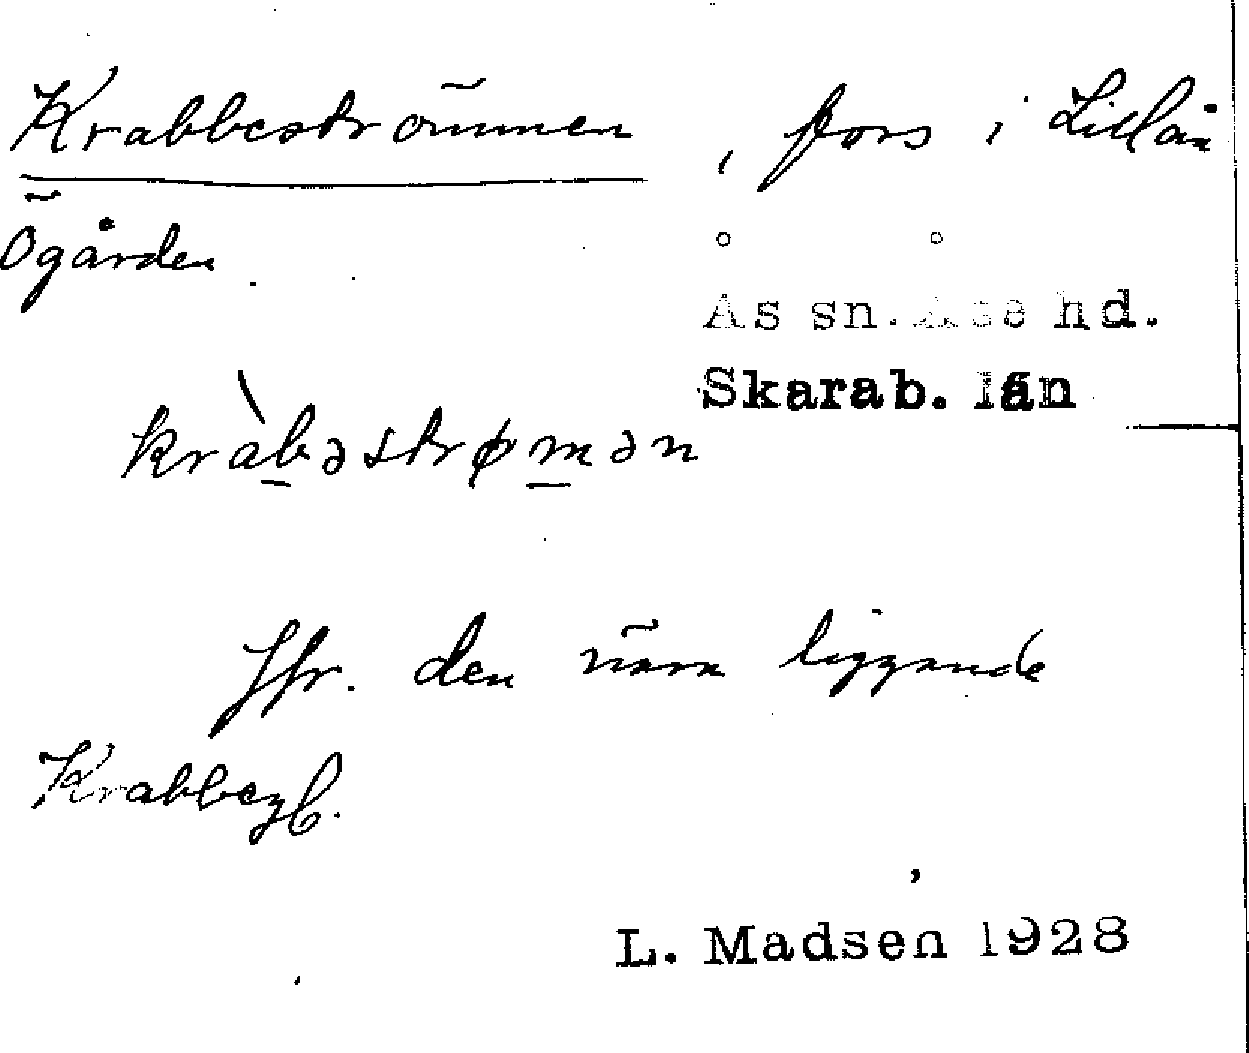 Krabbeströmmen, fors i Lillån
Ögården
Ås sn. Åse hd.
Skarab. län
kràbəstrømən
Jfr. den nära liggande
Krabbegb.
L. Madsen 1928